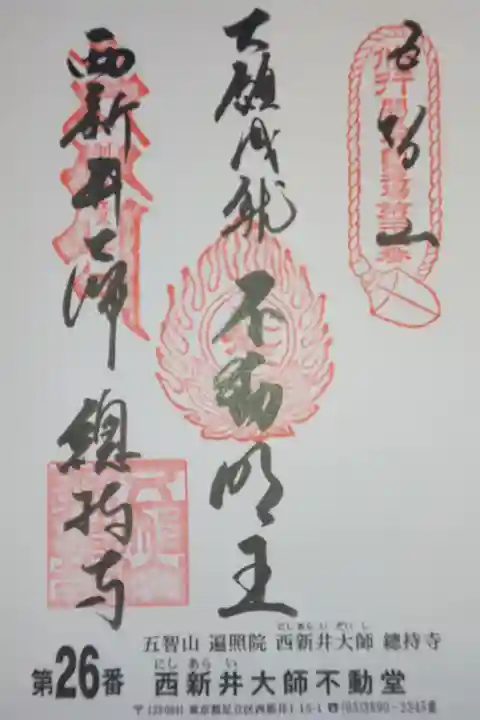 五智山
大願成就 不動明王
西新井大師 總持寺
五智山 遍照院 西新井大師 總持寺
にしあらいだいし
第26番 西新井大師不動堂
にしあらい
東京都足立区西新井1-15-1 ☎(03)3890-2345番